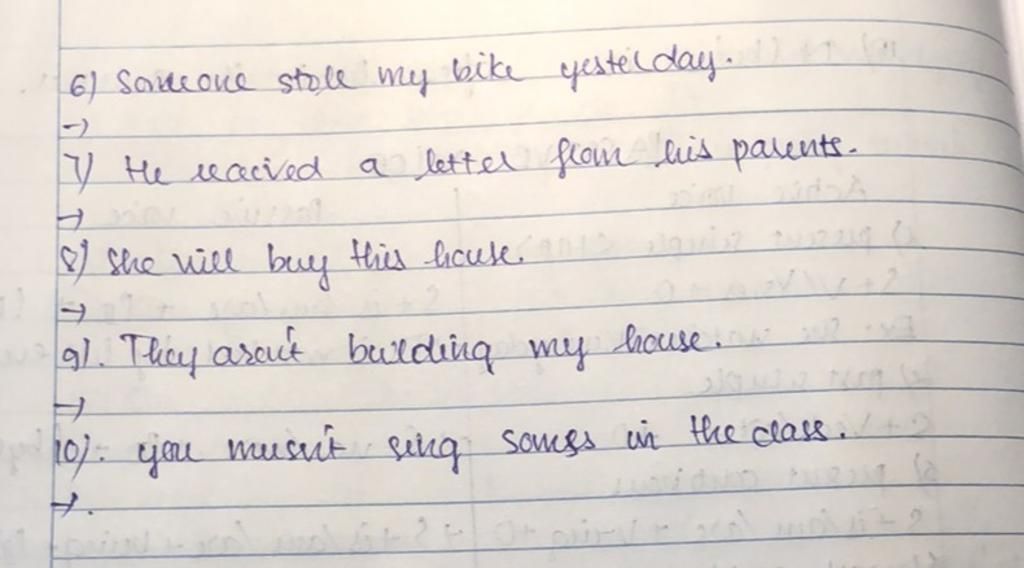 6) Someone stole my bike yesterday.
→
7) He received a letter from his parents.
→
8) She will buy this house.
→
9). They aren't building my house.
→
10). you musn't sing songs in the class.
→.